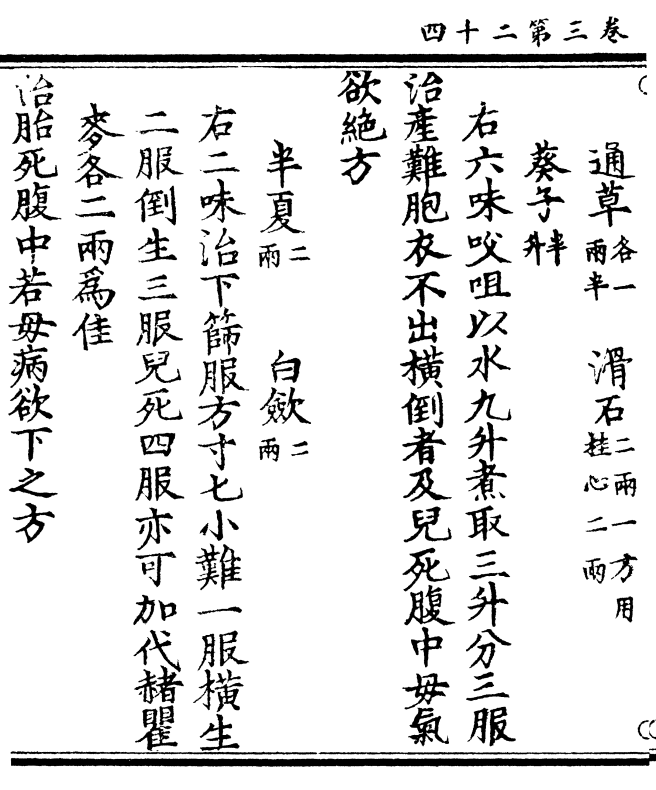 卷三第二十四
通草各一兩半　滑石二兩一方用桂心二兩
葵子半升
右六味㕮咀以水九升煮取三升分三服
治產難胞衣不出橫倒者及兒死腹中毋氣
欲絕方
半夏二兩　白歛二兩
右二味治下篩服方寸匕小難一服橫生
二服倒生三服兒死四服亦可加代赭瞿
麥各二兩爲佳
治胎死腹中若毋病欲下之方